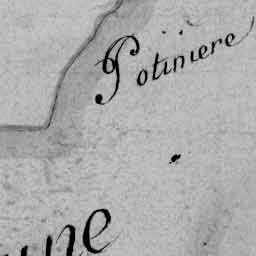 Potiniere
une